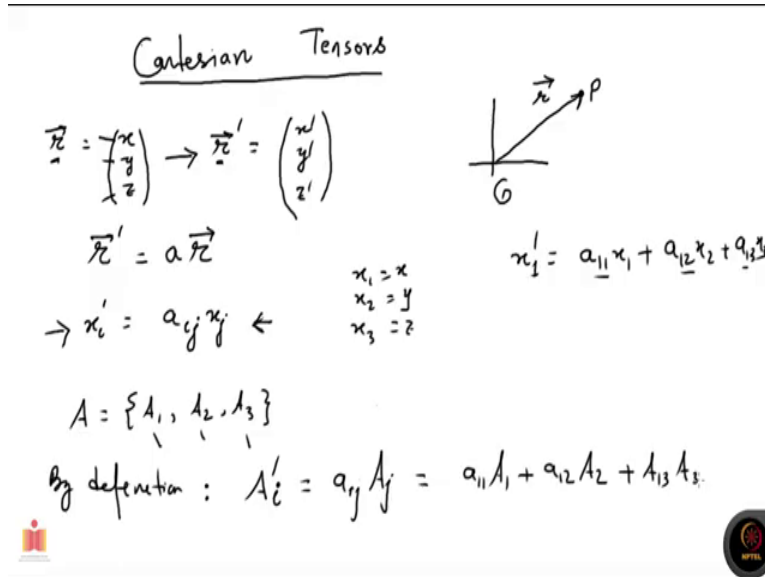 Cartesian Tensors
r⃗ = (x y z) → r⃗' = (x' y' z')
r⃗ P
O
r⃗' = a r⃗
x₁' = a₁₁x₁ + a₁₂x₂ + a₁₃x₃
x₁ = x
x₂ = y
x₃ = z
→ xᵢ' = aᵢⱼ xⱼ ←
A = {A₁, A₂, A₃}
By defenetion : Aᵢ' = aᵢⱼ Aⱼ = a₁₁A₁ + a₁₂A₂ + A₁₃A₃.
NPTEL